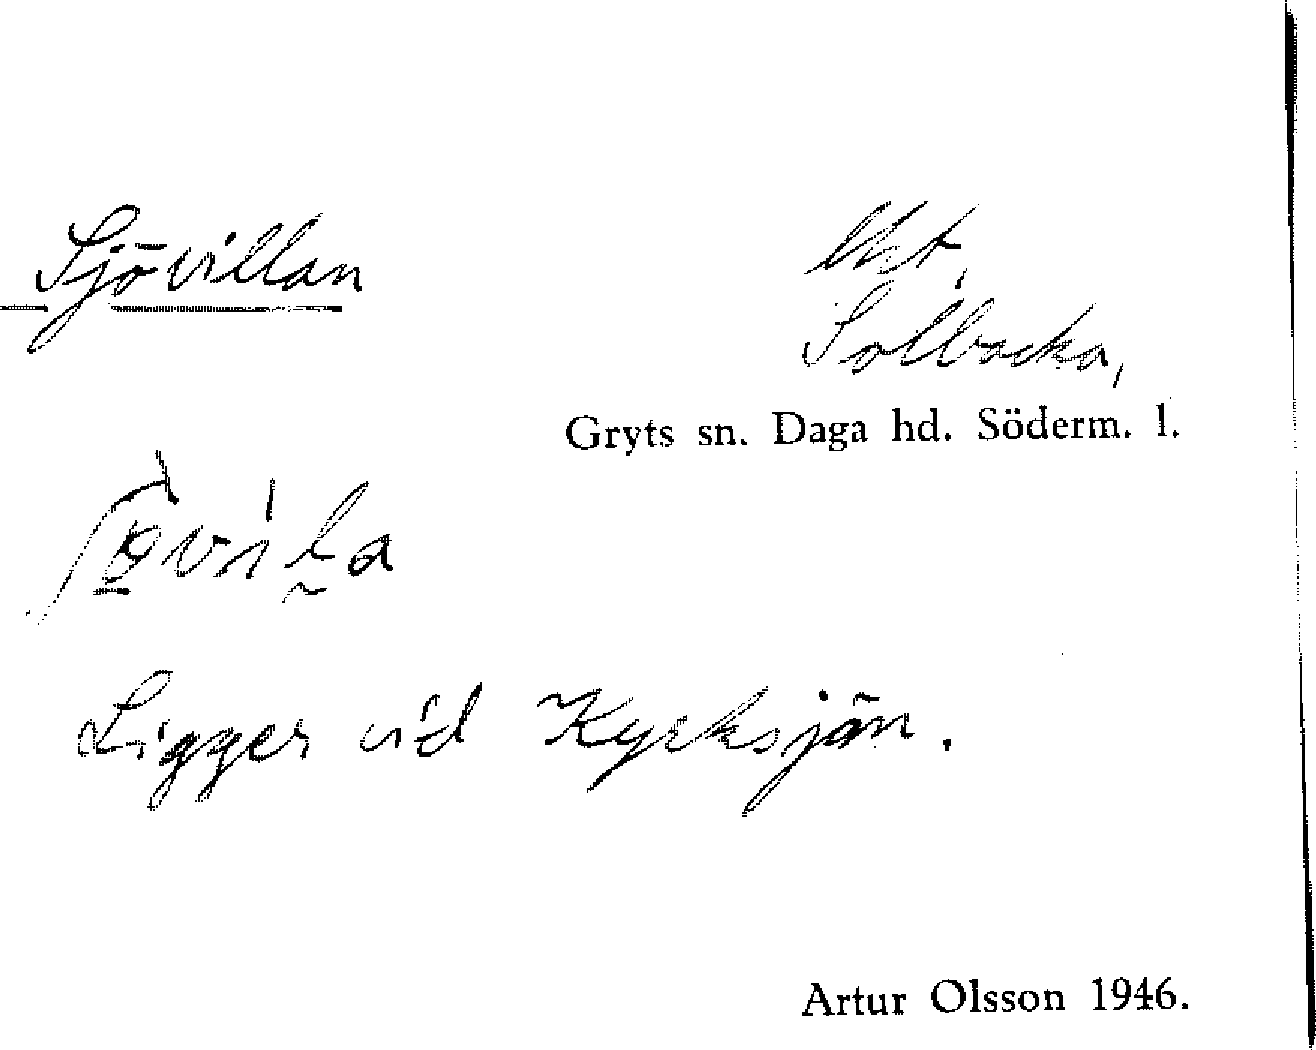 Sjövillan
lht,
Solbacka,
Gryts sn. Daga hd. Söderm. l.
Ligger vid Kyrksjön.
Artur Olsson 1946.